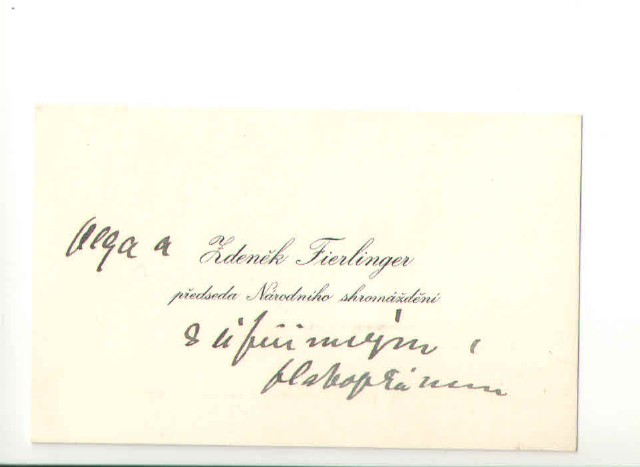 Olga a Zdeněk Fierlinger
předseda Národního shromáždění
s upřímným
blahopřáním